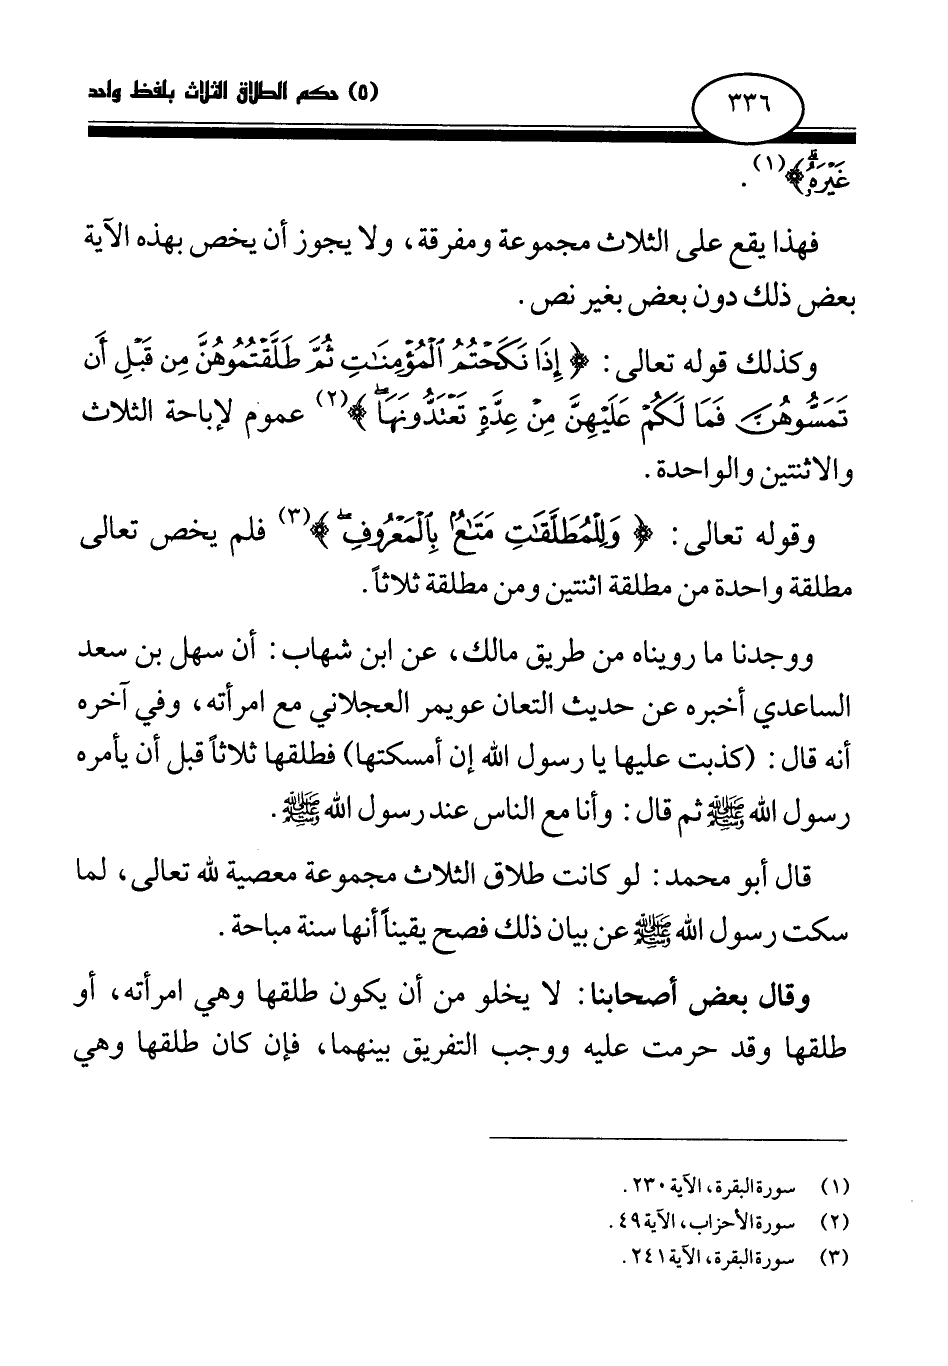 ٣٣٦
(٥) حكم الطلاق الثلاث بلفظ واحد
غَيْرَهُۥ ﴾(١) .
فهذا يقع على الثلاث مجموعة ومفرقة، ولا يجوز أن يخص بهذه الآية
بعض ذلك دون بعض بغير نص .
وكذلك قوله تعالى : ﴿ إِذَا نَكَحْتُمُ الْمُؤْمِنَٰتِ ثُمَّ طَلَّقْتُمُوهُنَّ مِن قَبْلِ أَن
تَمَسُّوهُنَّ فَمَا لَكُمْ عَلَيْهِنَّ مِنْ عِدَّةٍ تَعْتَدُّونَهَا ﴾(٢) عموم لإباحة الثلاث
والاثنتين والواحدة .
وقوله تعالى : ﴿ وَلِلْمُطَلَّقَٰتِ مَتَٰعٌ بِالْمَعْرُوفِ ﴾(٣) فلم يخص تعالى
مطلقة واحدة من مطلقة اثنتين ومن مطلقة ثلاثاً .
ووجدنا ما رويناه من طريق مالك، عن ابن شهاب : أن سهل بن سعد
الساعدي أخبره عن حديث التعان عويمر العجلاني مع امرأته، وفي آخره
أنه قال : (كذبت عليها يا رسول الله إن أمسكتها) فطلقها ثلاثاً قبل أن يأمره
رسول الله ﷺ ثم قال : وأنا مع الناس عند رسول الله ﷺ .
قال أبو محمد : لو كانت طلاق الثلاث مجموعة معصية لله تعالى، لما
سكت رسول الله ﷺ عن بيان ذلك فصح يقيناً أنها سنة مباحة .
وقال بعض أصحابنا : لا يخلو من أن يكون طلقها وهي امرأته، أو
طلقها وقد حرمت عليه ووجب التفريق بينهما، فإن كان طلقها وهي
(١) سورة البقرة، الآية ٢٣٠ .
(٢) سورة الأحزاب، الآية ٤٩ .
(٣) سورة البقرة، الآية ٢٤١ .